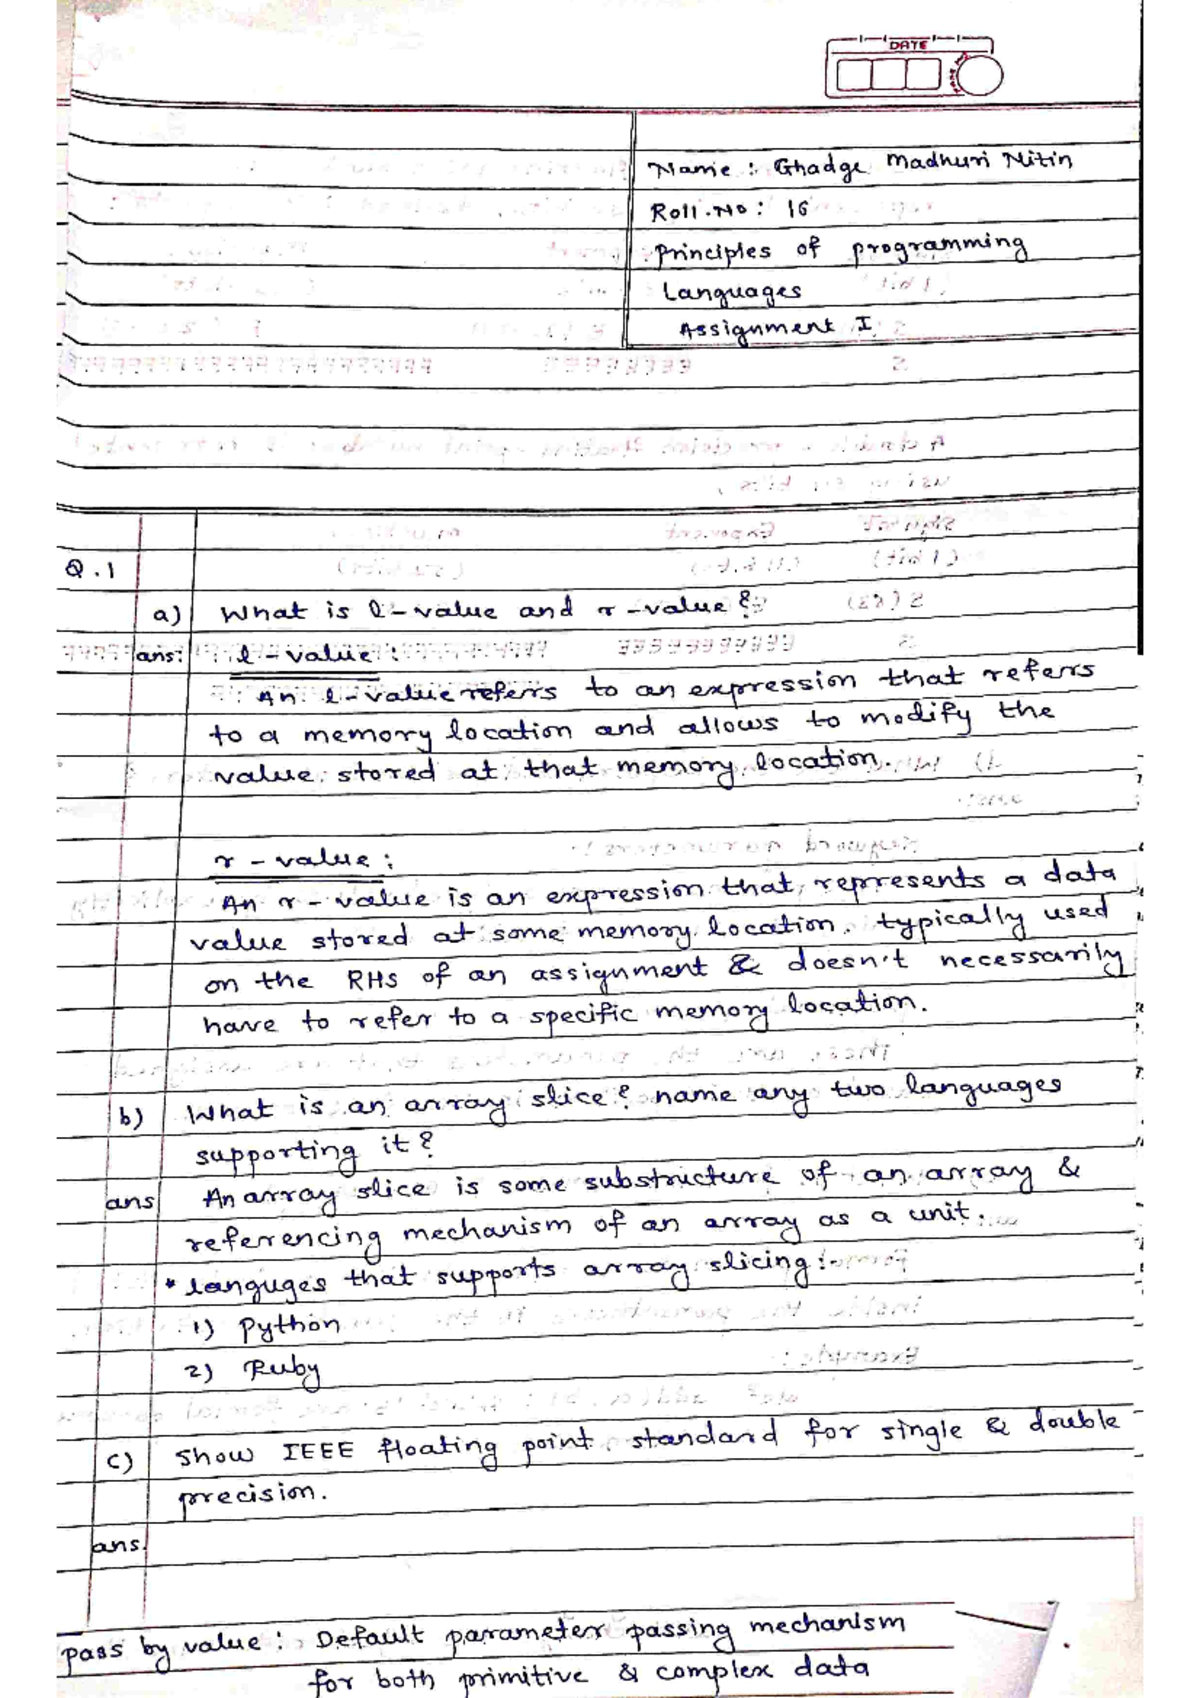 DATE
Name : Ghadge Madhuri Nitin
Roll.No : 16
Principles of programming
Languages
Assignment I
Q.1
a) What is l-value and r-value?
ans: l-value :
An l-value refers to an expression that refers
to a memory location and allows to modify the
value stored at that memory location.
r-value :
An r-value is an expression that represents a data
value stored at some memory location. typically used
on the RHS of an assignment & doesn't necessarily
have to refer to a specific memory location.
b) What is an array slice? name any two languages
supporting it?
ans An array slice is some substructure of an array &
referencing mechanism of an array as a unit.
* languges that supports array slicing :-
1) Python
2) Ruby
c) Show IEEE floating point standard for single & double
precision.
ans.
pass by value : Default parameter passing mechanism
for both primitive & complex data